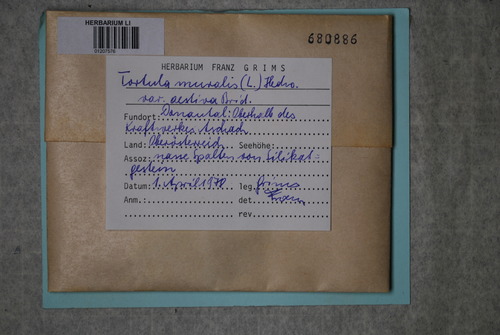 HERBARIUM LI
680886
HERBARIUM FRANZ GRIMS
Tortula muralis (L.) Hedw.
var. aestiva Brid.
Fundort: Donautal: Oberhalb des
Kraftwerkes Aschach
Land: Oberösterreich Seehöhe:
Assoz: nasse Spalten von Silikat-
gestein
Datum: 1. April 1978 leg. Grims
Anm.: det.
rev.